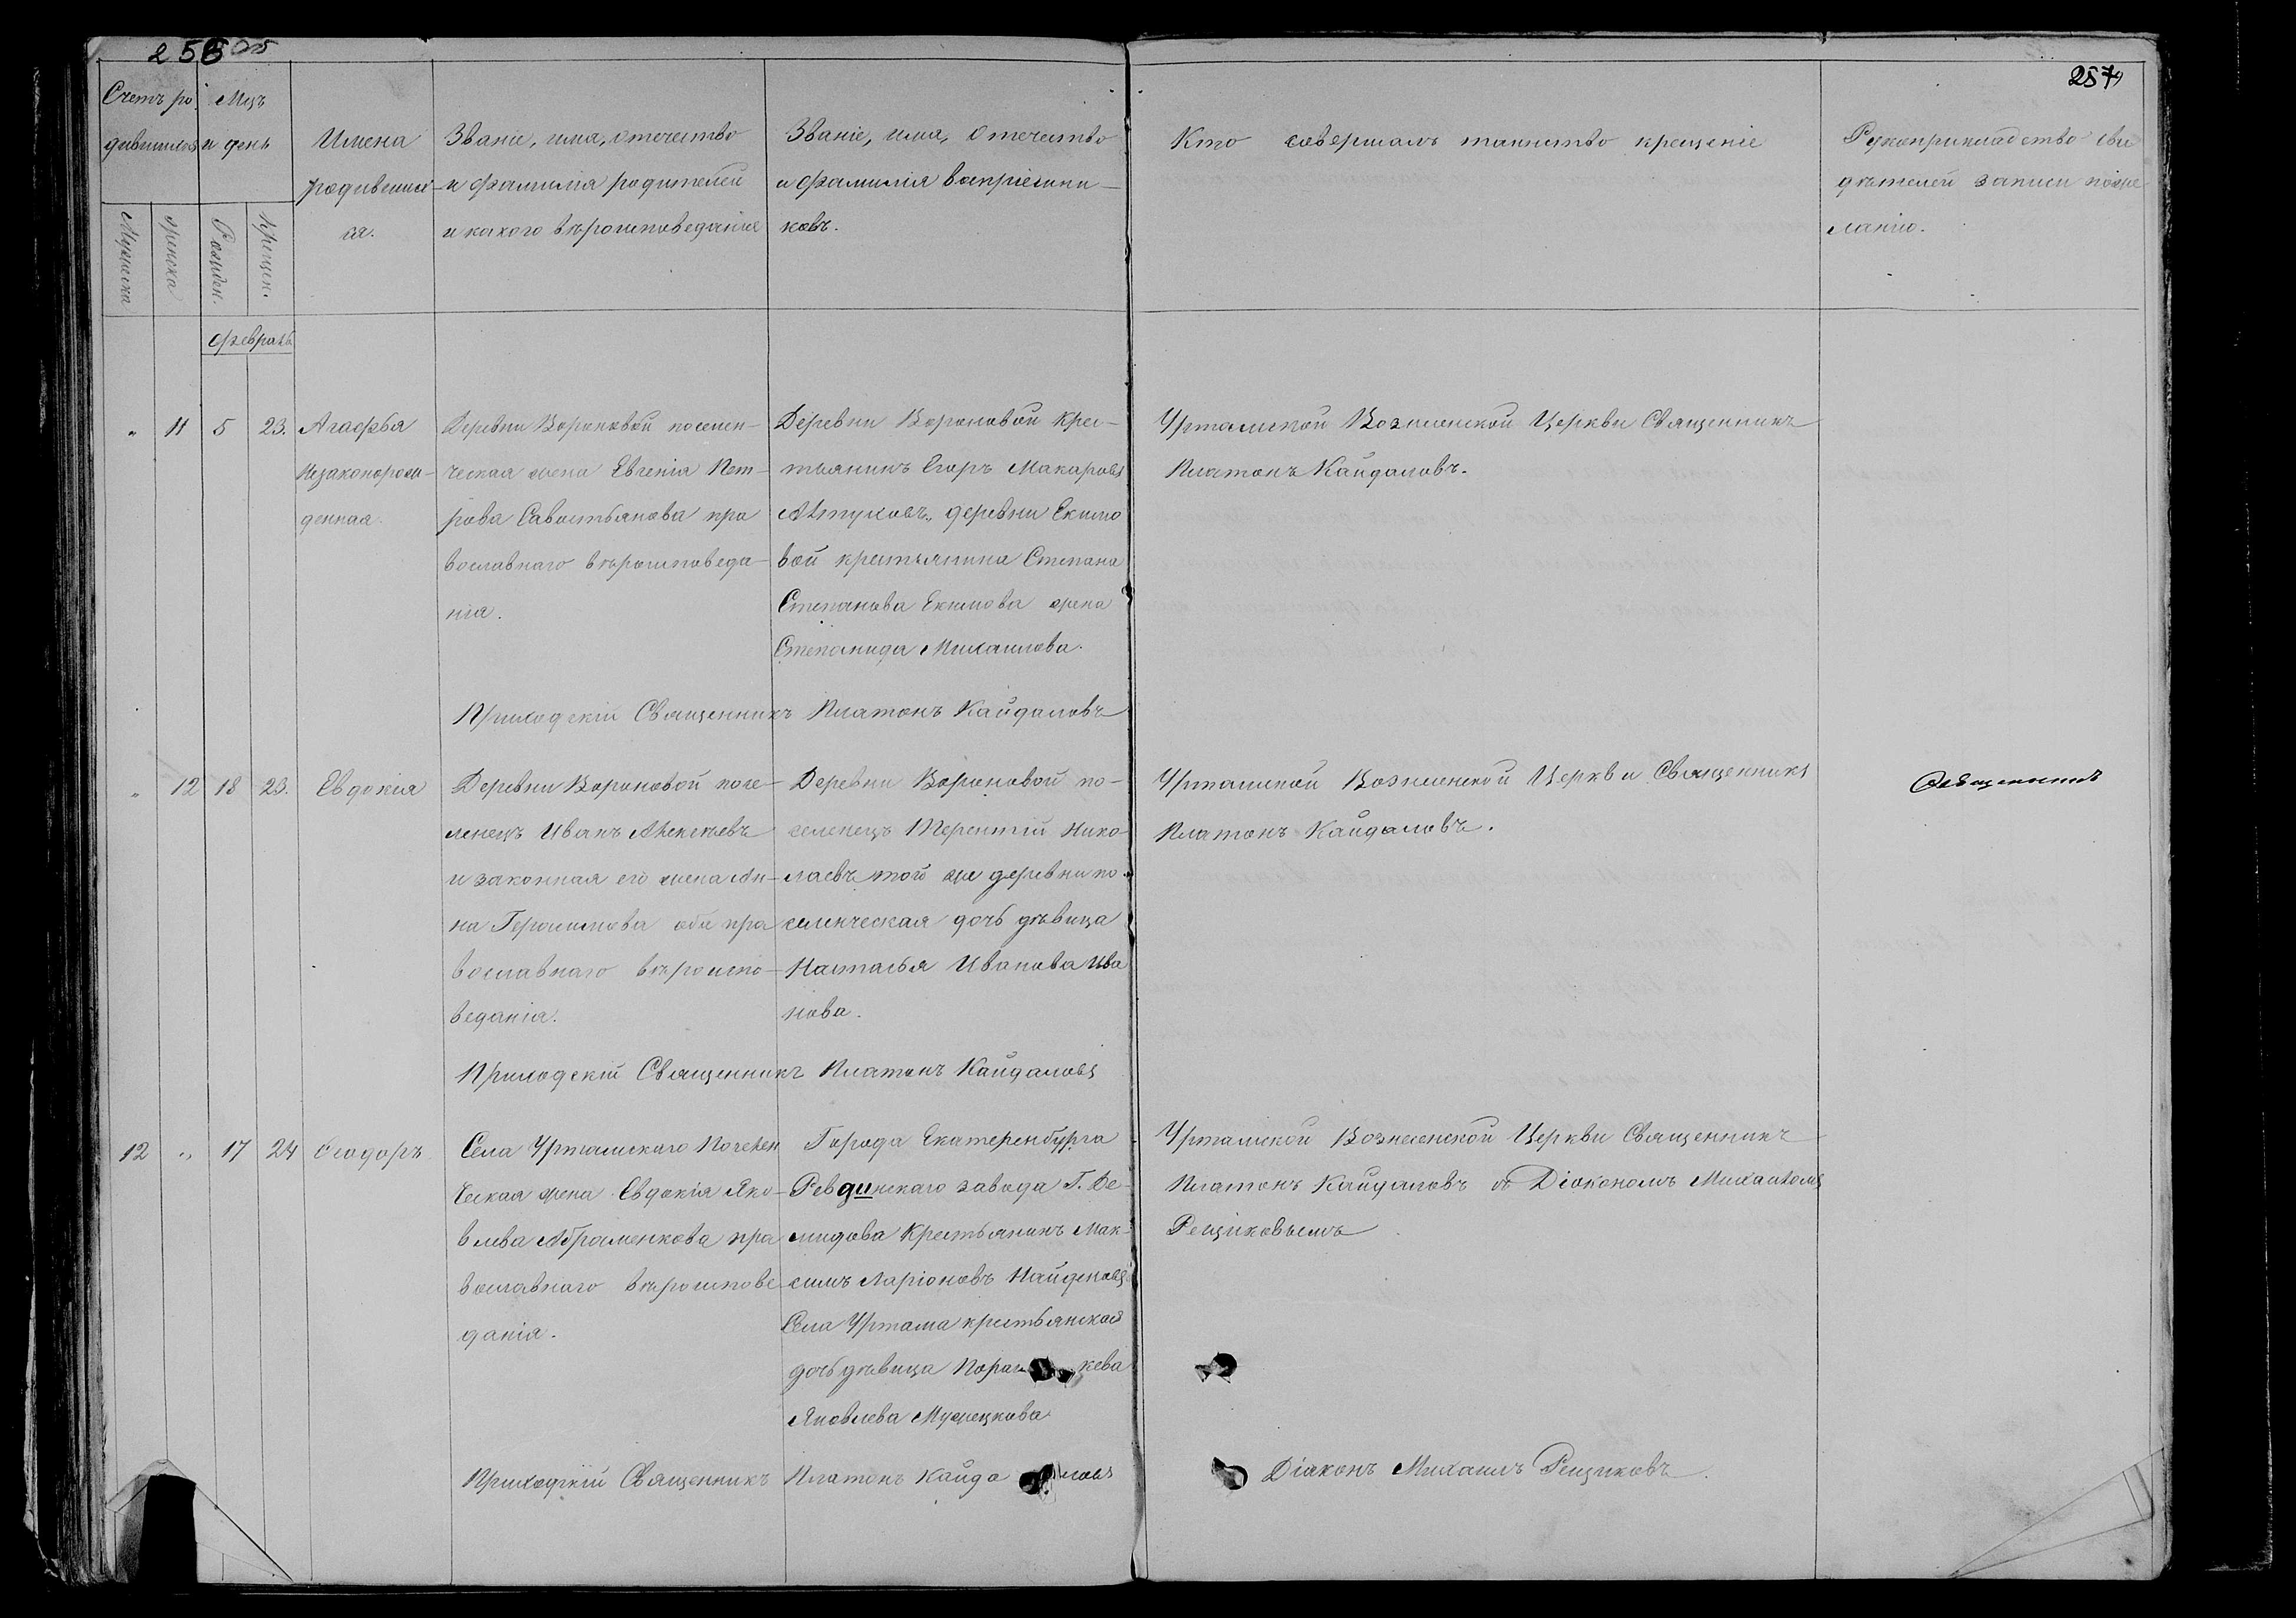 256 об
257
Счетъ ро
дившихся
Мцъ
и день
Имена
родивших
ся.
Званіе, имя, отечество
и фамилія родителей
и какого вѣроисповеданія
Званіе, имя, отечество
и фамилія воспріемни-
ковъ.
Кто совершалъ таинство крещеніе
Рукоприкладство сви
дѣтелей записи по же
ланію.
Мужеска
женска
Рожден.
Крещен.
Февраль
" 11 5 23.
Агафья
Незаконорож-
денная.
Деревни Вороновой поселен-
ческая жена Евгенія Пет-
рова Савостьянова пра
вославнаго вѣроисповеда-
нія.
Деревни Вороновой Крес-
тьянинъ Егоръ Макаровъ
деревни Екимо
вой крестьянина Степана
Степанова Екимова жена
Степанида Михаилова.
Уртамской Вознесенской Церкви Священникъ
Платонъ Кайдаловъ.
Приходскій Священникъ Платонъ Кайдаловъ
" 12 18 23.
Евдокія
Деревни Вороновой посе-
ленецъ Иванъ Алексѣевъ
и законная его жена Ан-
на Геросимова оба пра
вославнаго вѣроиспо-
веданія.
Деревни Вороновой по-
селенецъ Терентій Нико-
лаевъ той же деревни по-
селенческая дочь дѣвица
Настасья Иванова Ива
нова.
Уртамской Вознесенской Церкви Священникъ
Платонъ Кайдаловъ.
Священникъ
Приходскій Священникъ Платонъ Кайдаловъ
12 " 17 24
Феодоръ
Села Уртамскаго Поселен
ческая жена Евдокія Яко-
влева Абраменкова пра
вославнаго вѣроисповѣ
данія.
Города Екатеренбурга
Ревдинскаго завода Г. Де-
мидова Крестьянинъ Мак-
симъ Ларіоновъ Найденовъ
Села Уртама крестьянская
дочь дѣвица Порас кева
Яковлева Мужецкова
Уртамской Вознесенской Церкви Священникъ
Платонъ Кайдаловъ съ Діакономъ Михаиломъ
Рещиковымъ
Приходскій Священникъ Платонъ Кайда ловъ
Діаконъ Михаилъ Рещиковъ.